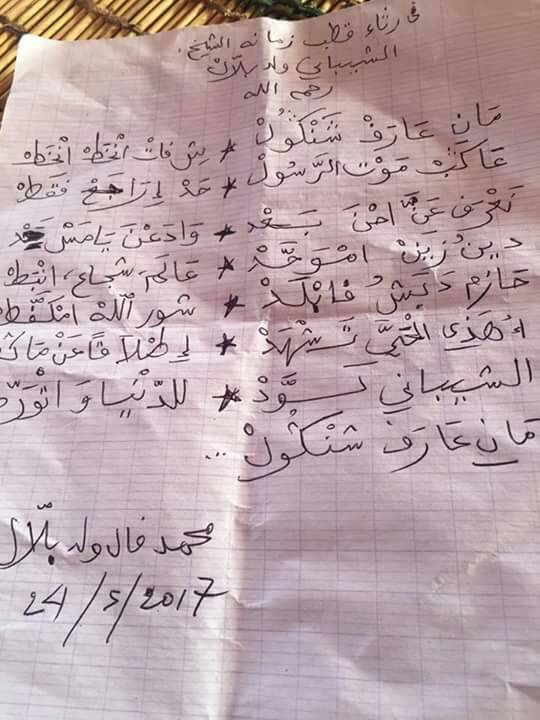 في رثاء قطب زمانه الشيخ
الشيباني ولد بلال
رحمه الله
مَانِ عَارَفْ شَنْكُولْ
عَاكَبْ مَوْتْ الرَّسُولْ * حَدْ إِرَاجَعْ فَقَطْ
نَعْرَفْ عَنِّ احْنَ بَعْدْ * وَادَعْنَ يَامَسْ
دِينْ زَيْنْ امْوَحَّدْ * عَالَمْ، شجاع،
حَازِم دَيَّسْ فَابْلَدْ * شور اللّٰه
اُهَذِي الْحَيّ تَشْهَدْ * إِطْلَاقًا عَنْ
الشيباني كَوَّدْ * للدّنْيا وَ
مَانِ عَارَفْ شَنْكُولْ ...
محمد فال ولد بلّال
24/5/2017